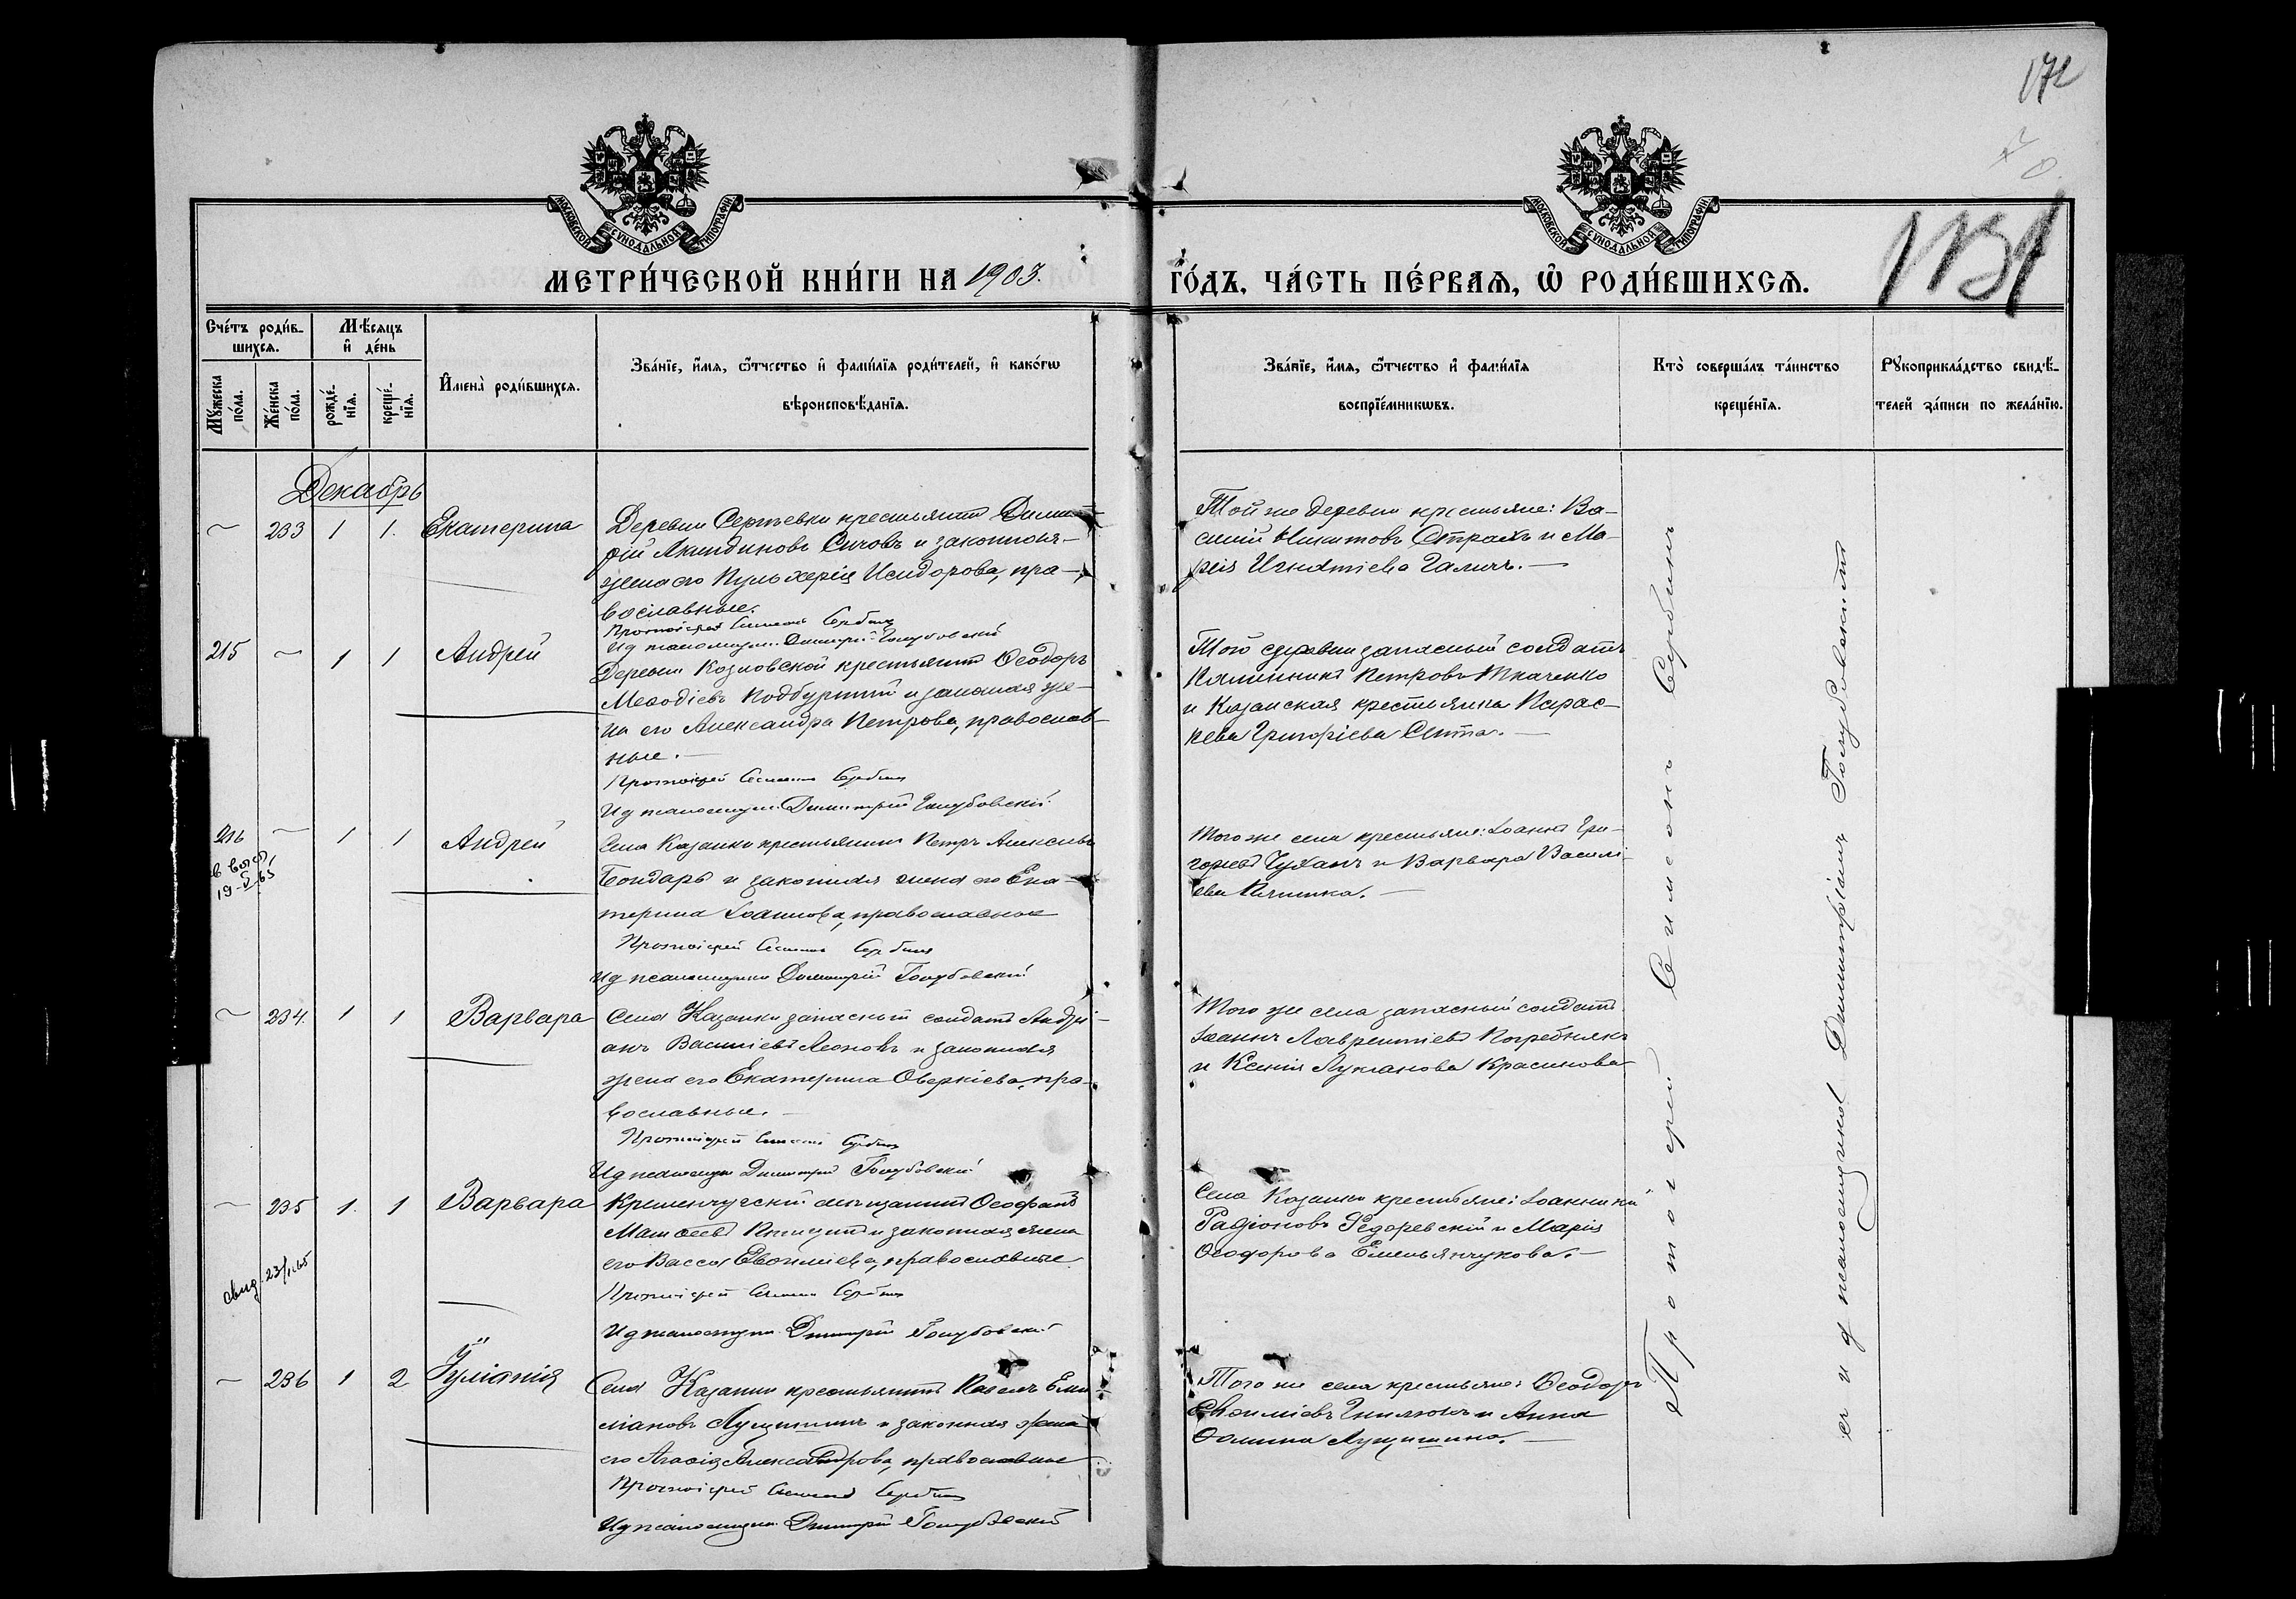 172
МОСКОВСКОЙ СѴНОДАЛЬНОЙ ТИПОГРАФІИ
МОСКОВСКОЙ СѴНОДАЛЬНОЙ ТИПОГРАФІИ
МЕТРИ́ЧЕСКОЙ КНИ́ГИ НА 1903.
ГО́ДЪ, ЧА́СТЬ ПЕ́РВАѦ, Ѡ҆ РОДИ́ВШИХСѦ.
Сче́тъ роди́в-
шихсѧ.
Мѣ́сѧцъ
и҆ де́нь
Мꙋ́жеска
по́ла.
Же́нска
по́ла.
рожде́-
нїѧ.
креще́-
нїѧ.
И҆мена̀ роди́вшихсѧ.
Зва́нїе, и҆́мѧ, ѻ҆́тчество и҆ фами́лїѧ роди́телей, и҆ како́гѡ
вѣроисповѣ́данїѧ.
Зва́нїе, и҆́мѧ, ѻ҆́тчество и҆ фами́лїѧ
воспрїе́мникѡвъ.
Кто̀ соверша́лъ та́инство
креще́нїѧ.
Рꙋкоприкла́дство свидѣ́-
телей за́писи по жела́нїю.
Декабрь
~ 233 1 1. Екатерина
Деревни Сергѣевки крестьянинъ Дими-
трій Акиндиновъ Сичовъ и законная
жена его Пульхерія Исидорова, пра-
вославные.
Протоіерей Симеонъ Сербинъ
И д псаломщика Димитрій Голубовскій
Той же деревни крестьяне: Ва-
силій Никитовъ Страхъ и Ма-
рія Игнатіева Галичъ.
215 ~ 1 1 Андрей
Деревни Козловской крестьянинъ Ѳеодоръ
Меѳодіевъ Подбуртный и законная же-
на его Александра Петрова, православ-
ные.
Протоіерей Симеонъ Сербинъ
И д псаломщика Димитрій Голубовскій
Той деревни запасный солдатъ
Каллиникъ Петровъ Ткаченко
и Казанская крестьянка Парас-
кева Григоріева Сыта.
216 ~ 1 1 Андрей
19-V-65
Села Казанки крестьянинъ Петръ Алексѣевъ
Бондарь и законная жена его Ека-
терина Іоаннова, православные
Протоіерей Симеонъ Сербинъ
И д псаломщика Димитрій Голубовскій
Того же села крестьяне: Іоаннъ Гри-
горьевъ Чуханъ и Варвара Василі-
ева
~ 234. 1 1 Варвара
Села Казанки запасный солдатъ Андрі-
анъ Василіевъ Леоновъ и законная
жена его Екатерина Оверкіева, пра-
вославные.
Протоіерей Симеонъ Сербинъ
И д псаломщика Димитрій Голубовскій
Того же села запасный солдатъ
Іоаннъ Лаврентіевъ Погребнякъ
и Ксенія Лукіанова Красинова
~ 235 1. 1 Варвара
свид. 23/
Кременчугскій мѣщанинъ Ѳеофанъ
Матѳеевъ и законная жена
его Васса Евѳиміева, православные
Протоіерей Симеонъ Сербинъ
И д псаломщика Димитрій Голубовскій
Села Казанки крестьяне: Іоанникій
Радіоновъ Федоревскій и Марія
Ѳеодорова Емельянчукова.
~ 236 1 2 Іуліанія
Села Казанки крестьянинъ Павелъ Еми-
ліановъ Лущишинъ и законная жена
его Агаѳія Александрова, православные
Протоіерей Симеонъ Сербинъ
И д псаломщика Димитрій Голубовскій
Того же села крестьяне: Ѳеодоръ
Евѳиміевъ Гнилюкъ и Анна
Ѳомина Лущишина.
Протоіерей Симеонъ Сербинъ
съ и д псаломщика Димитріемъ Голубовскимъ